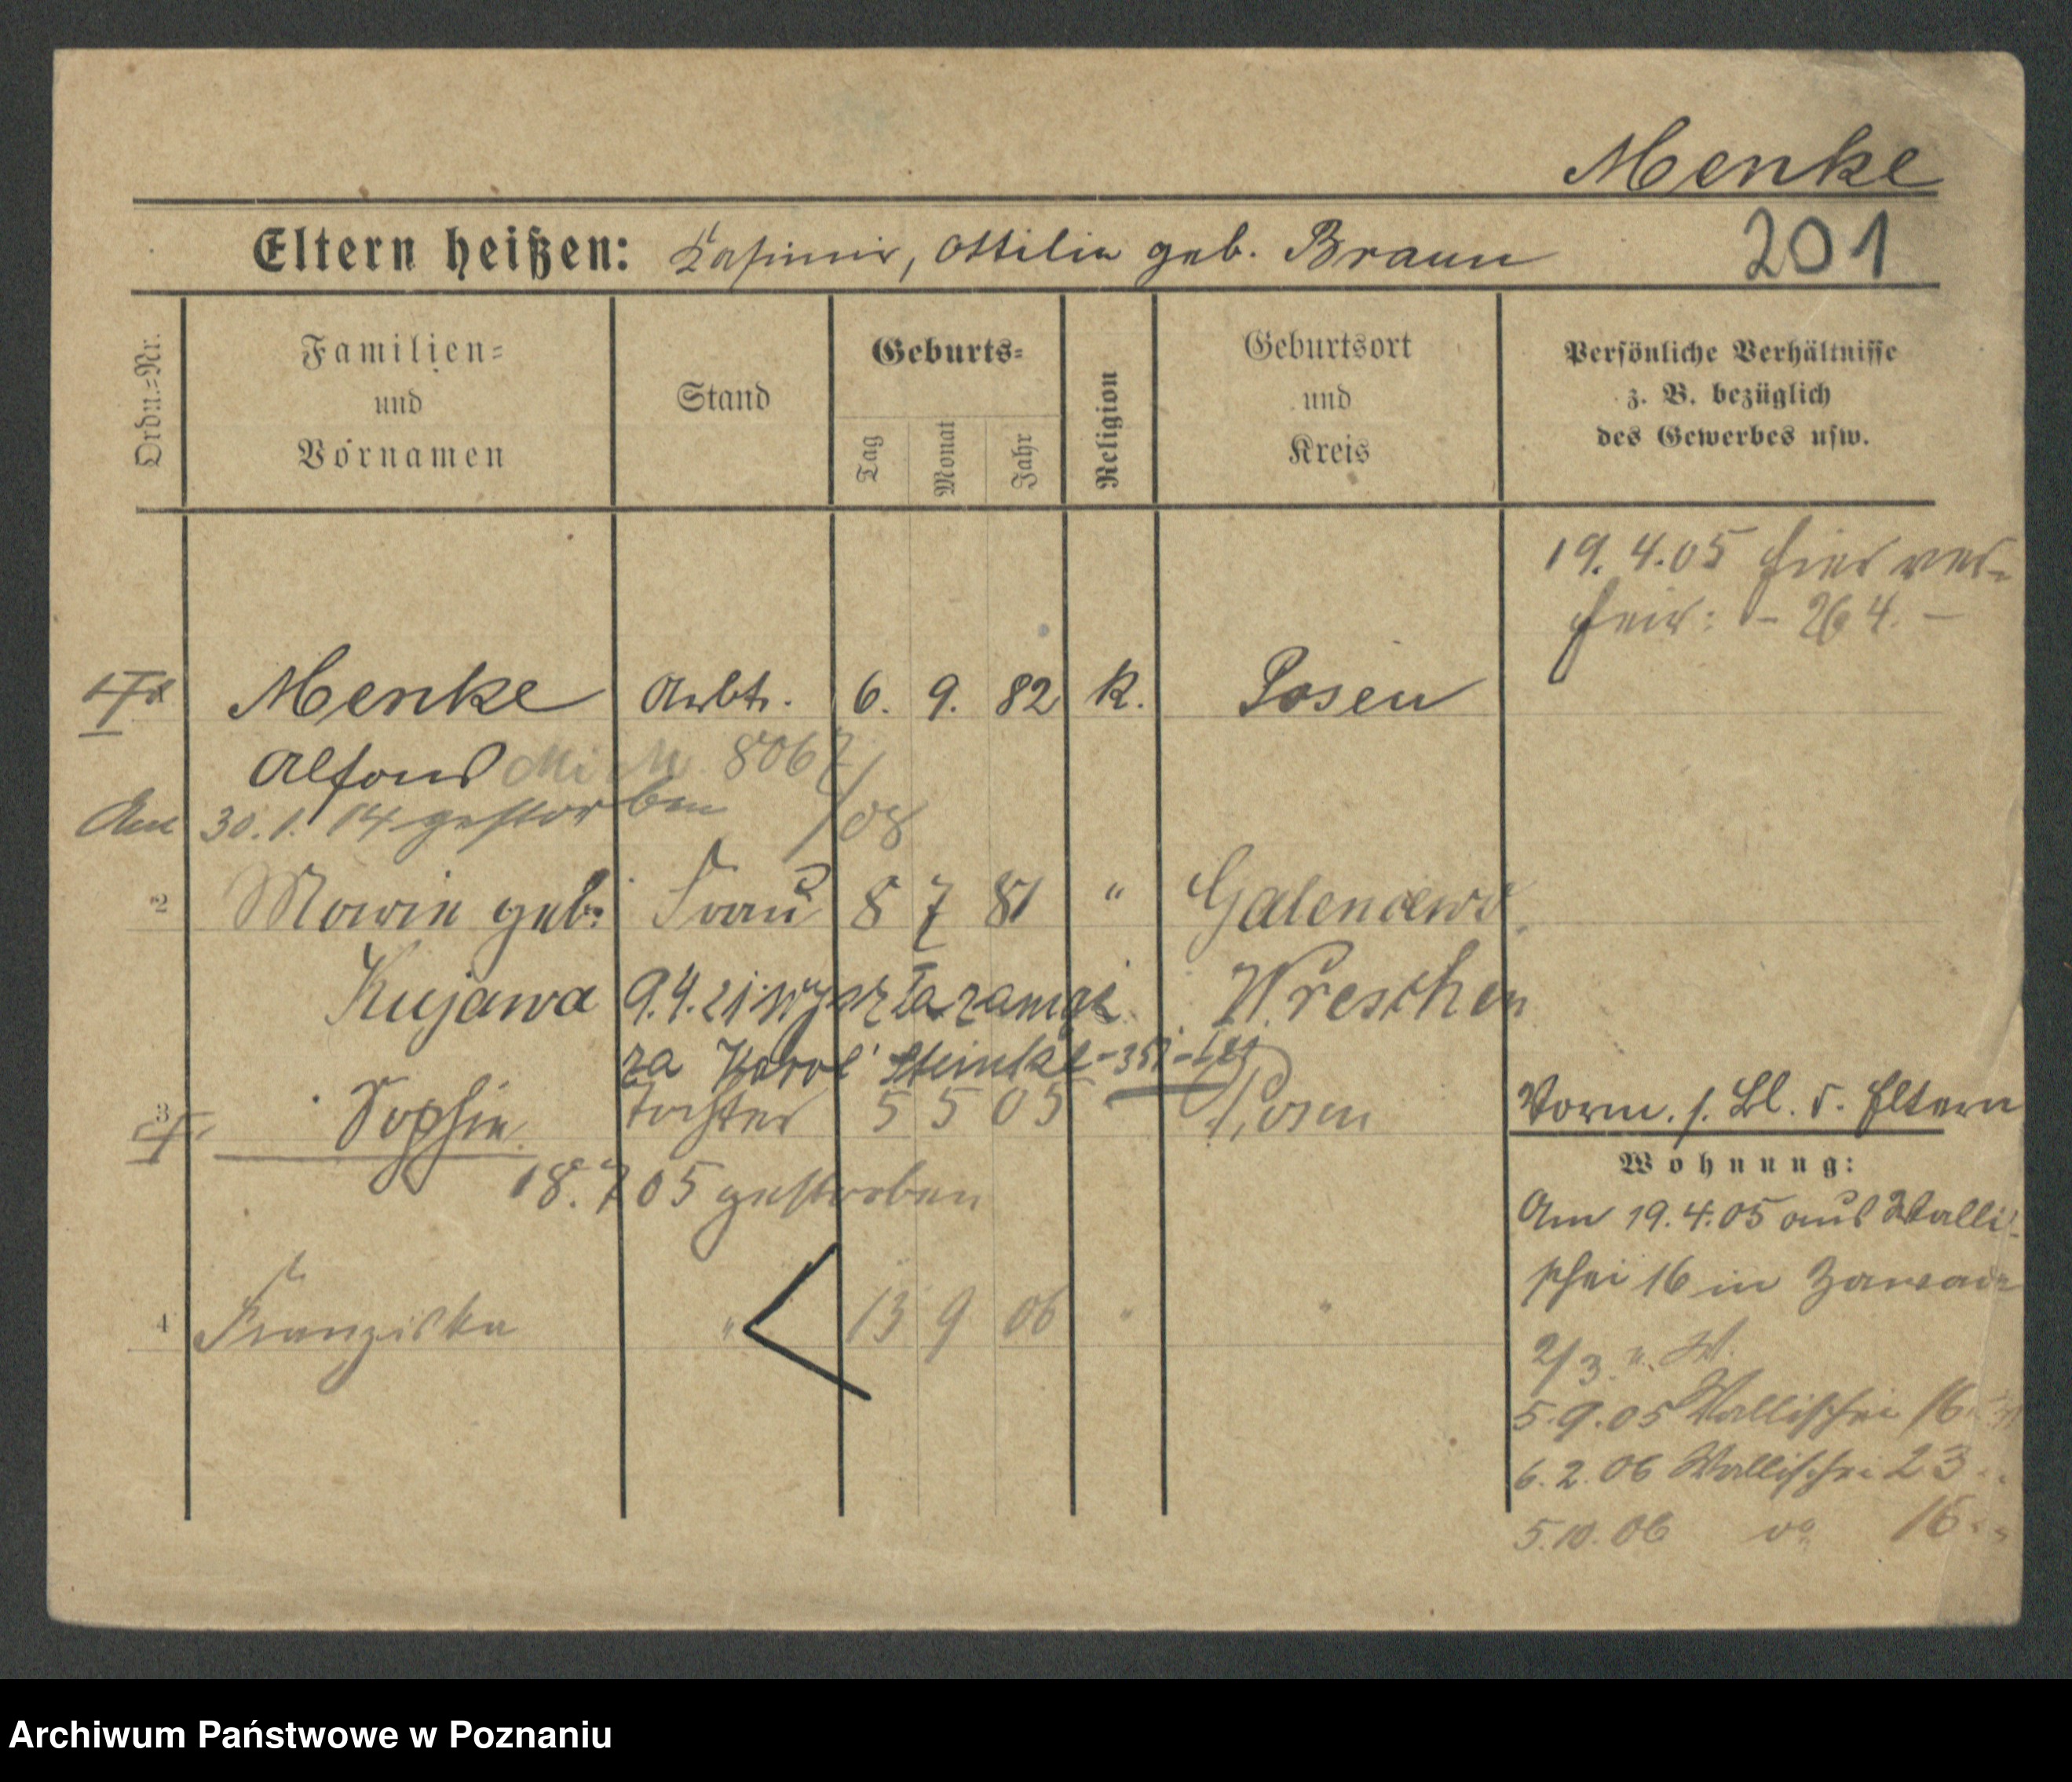 Menke
201
Eltern heißen: Kasimir, Ottilia geb. Braun
Ordn.-Nr.
Familien- und Vornamen
Stand
Geburts-
Tag Monat Jahr
Religion
Geburtsort und Kreis
Persönliche Verhältnisse
z. B. bezüglich
des Gewerbes usw.
19. 4. 05 hier ver-
heir: - 264. -
Menke Arbtr. 6. 9. 82 K. Posen
Alfons 8067/08
Am 30. 1. 14 gestorben
2 Marie geb. Frau 8 7 81 " Galencewo
Kujawa 9.4.21 wyszła zamąż Wreschen
za Karol Steinke
3 Sophie Tochter 5 5 05 " Posen
18. 7 05 gestorben
4 Franziska " 13 9 06 " "
Vorm. s. Bl. d. Eltern
Wohnung:
Am 19. 4. 05 aus Walli-
schei 16 in Zawade
2/3
5. 9. 05 Wallischei 16
6. 2. 06 Wallischei 23
5. 10. 06 do 16
Archiwum Państwowe w Poznaniu